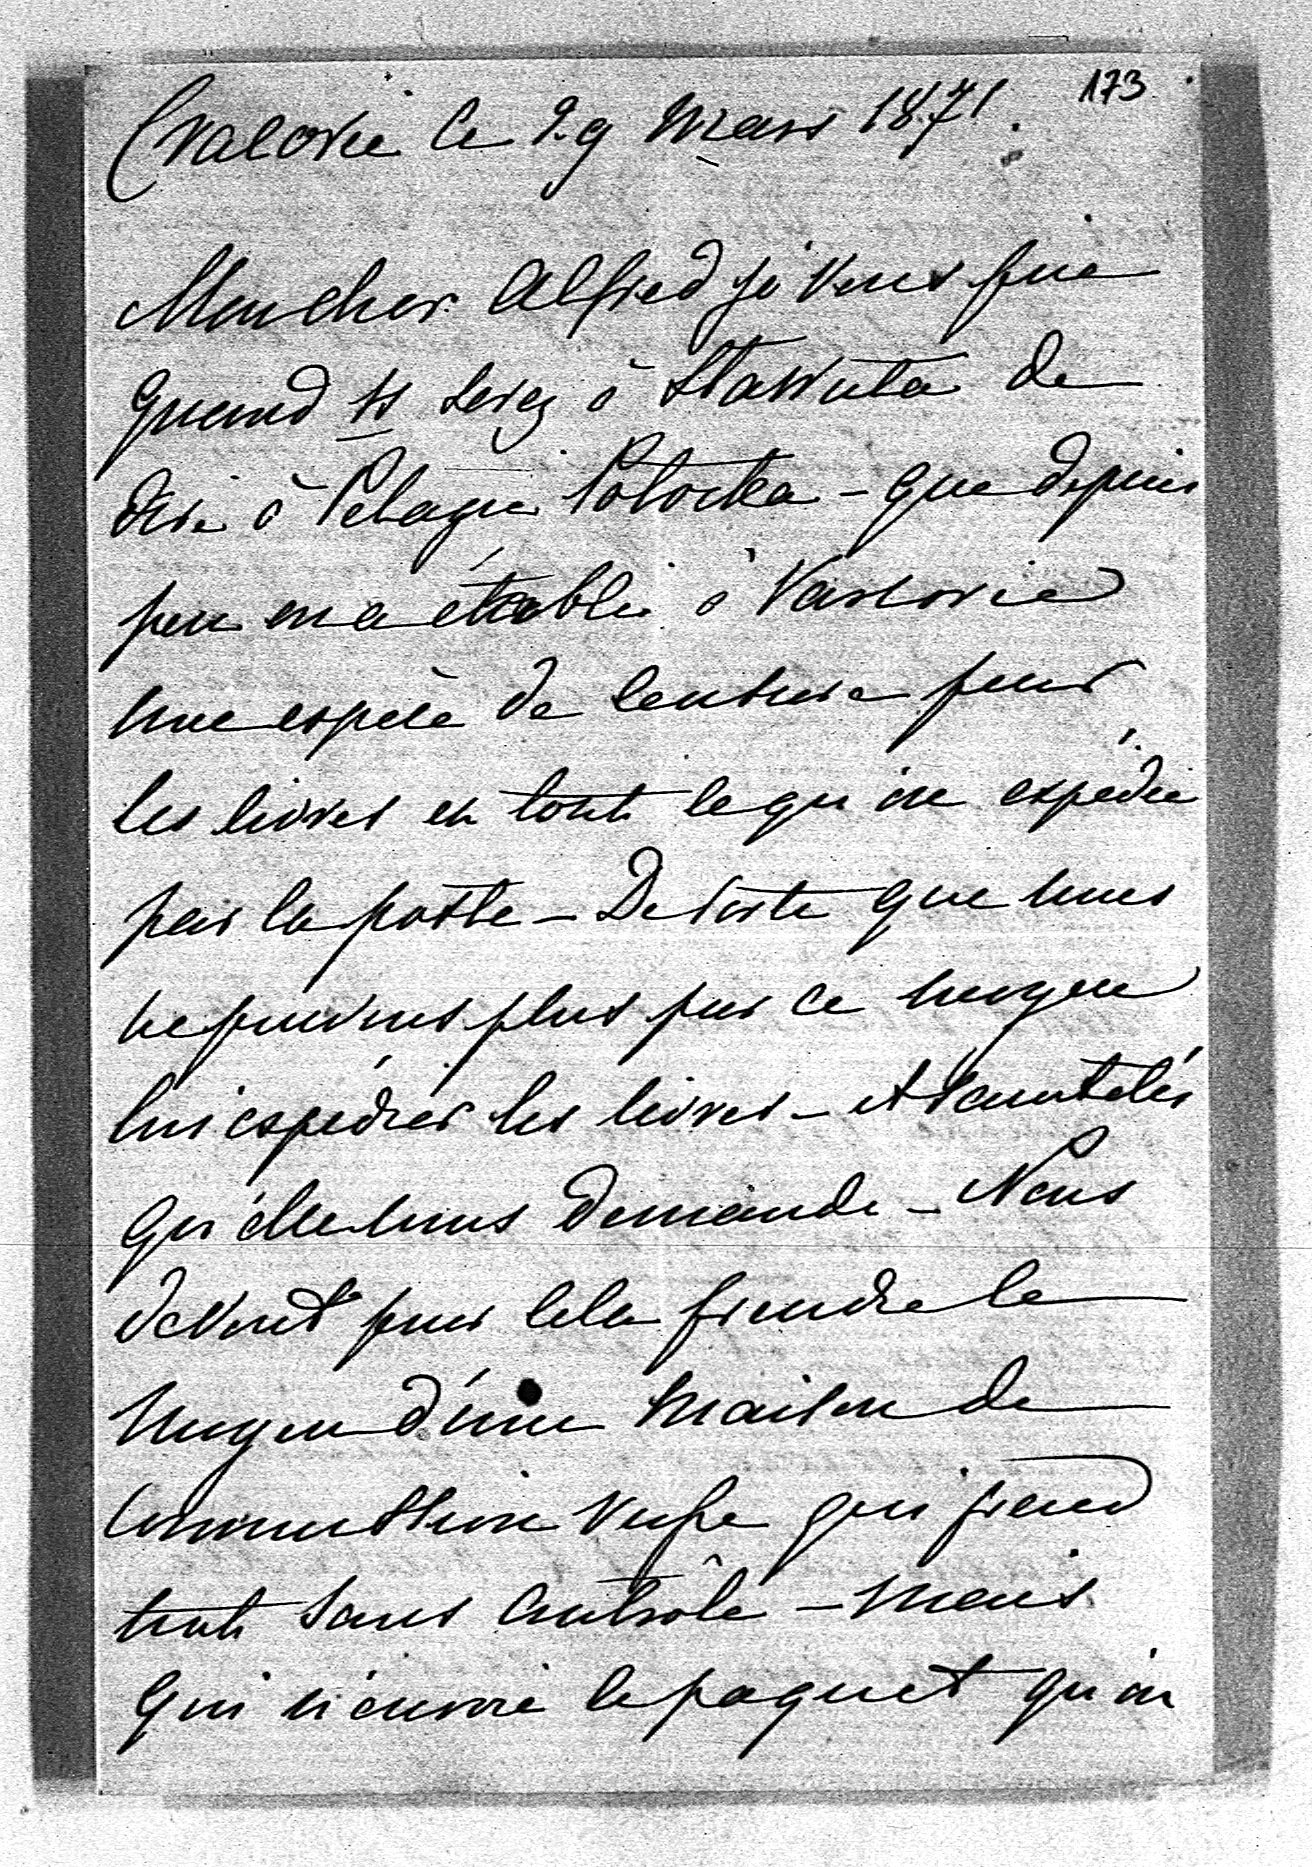 173
Cracovie le 29 Mars 1871.
Mon cher Alfred je vous prie
quand vs serez à Slawuta de
dire à Pélagie Potocka – que depuis
peu on a établi à Varsovie
une espèce de censure pour
les livres et tout ce qu'on expédie
par la poste – De sorte que nous
ne pouvons plus par ce moyen
lui expédier les livres – et
qu'elle nous demande – Nous
devont pour cela prendre le
moyen d'une maison de
Commission Russe qui prend
tout sans contrôle – mais
qui n'envoie le paquet qu'on